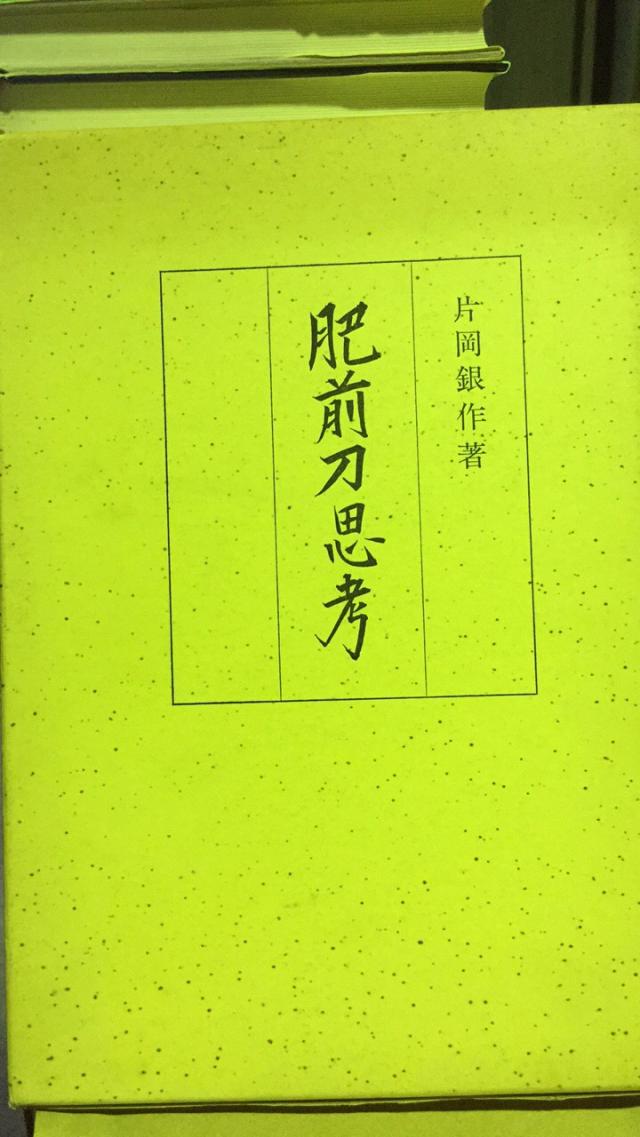 片岡銀作著
肥前刀思考